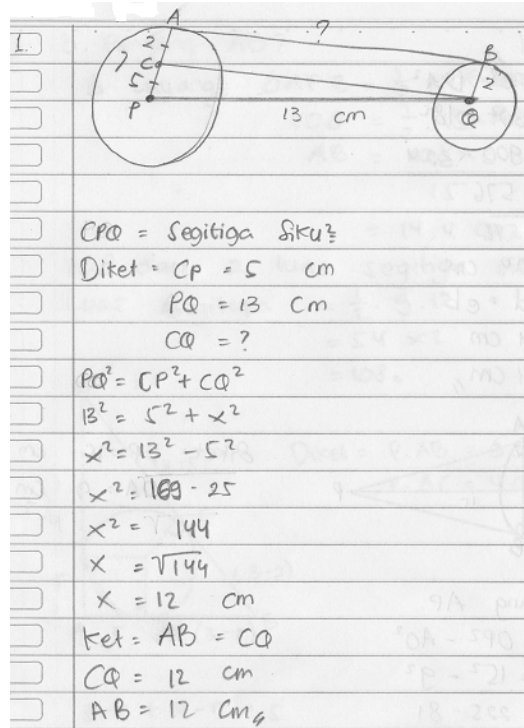 1.
A
?
2
7
C
5
P
13 cm
B
2
Q
CPQ = Segitiga Siku²
Diket = CP = 5 cm
PQ = 13 cm
CQ = ?
PQ² = CP² + CQ²
13² = 5² + x²
x² = 13² - 5²
x² = 169 - 25
x² = 144
x = √144
x = 12 cm
Ket = AB = CQ
CQ = 12 cm
AB = 12 cm